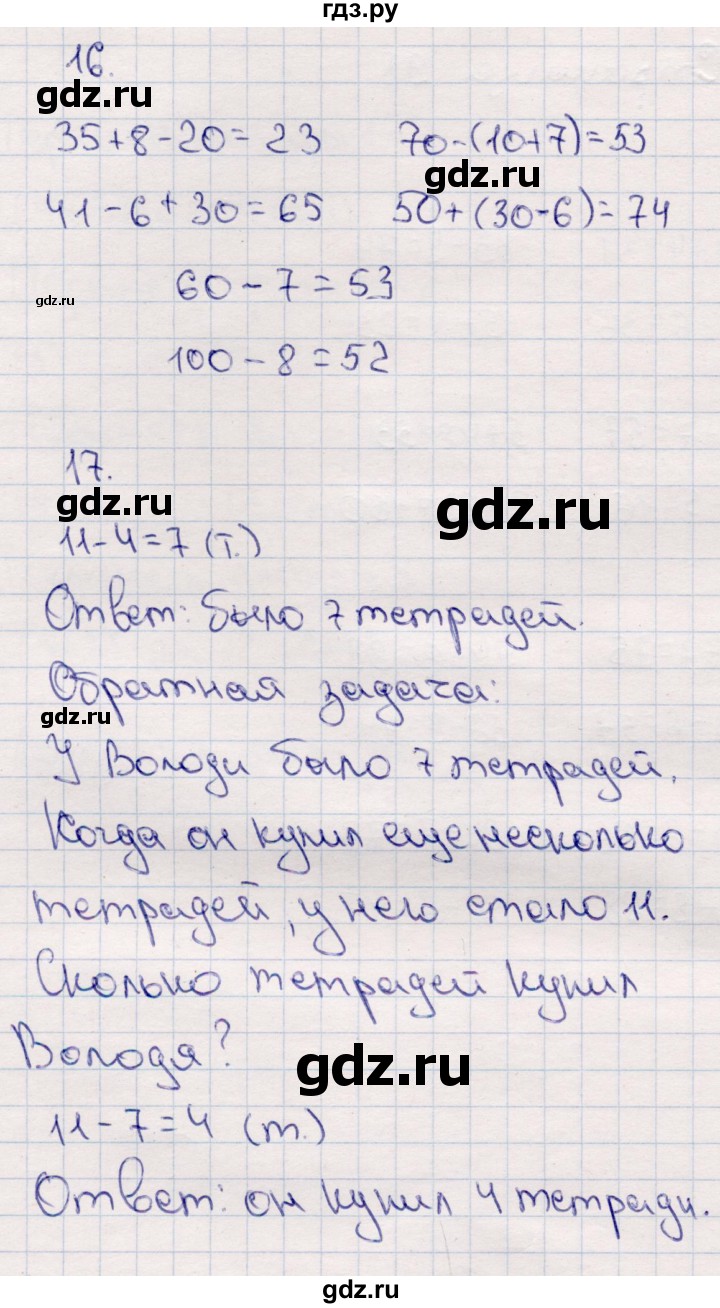 гдз.ру
16.
gdz.ru
35+8-20=23 70-(10+7)=53
gdz.ru
41-6+30=65 50+(30-6)=74
60-7=53
gdz.ru
100-8=52
17.
gdz.ru gdz.ru
11-4=7 (т.)
Ответ: было 7 тетрадей.
Обратная задача:
gdz.ru
У Володи было 7 тетрадей.
Когда он купил еще несколько
тетрадей, у него стало 11.
Сколько тетрадей купил
Володя?
gdz.ru
11-7=4 (т.)
Ответ: он купил 4 тетради.
gdz.ru